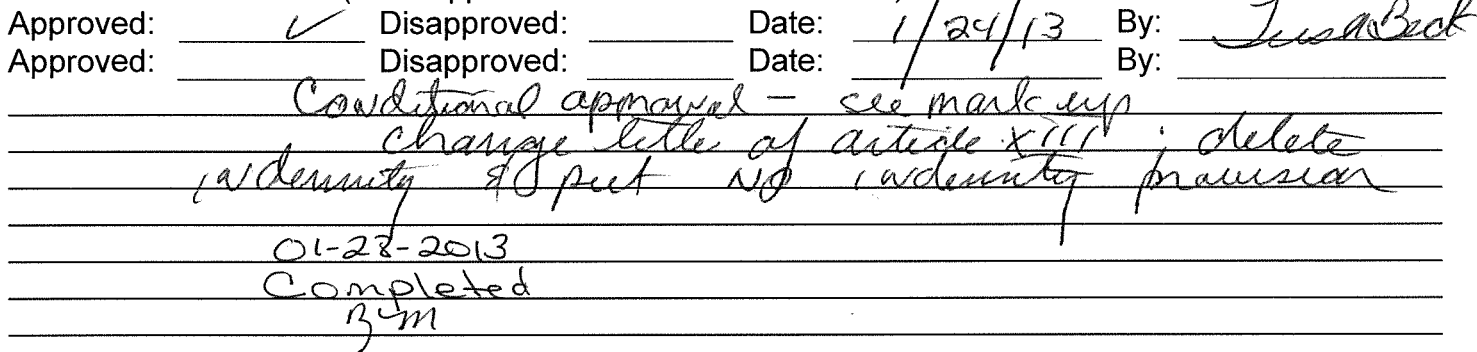 Approved: ✓ Disapproved: Date: 1/24/13 By: Beck
Approved: Disapproved: Date: By:
Conditional approval – see mark up
change title of article XIII ; delete
indemnity & put NO indemnity provision
01-28-2013
Completed